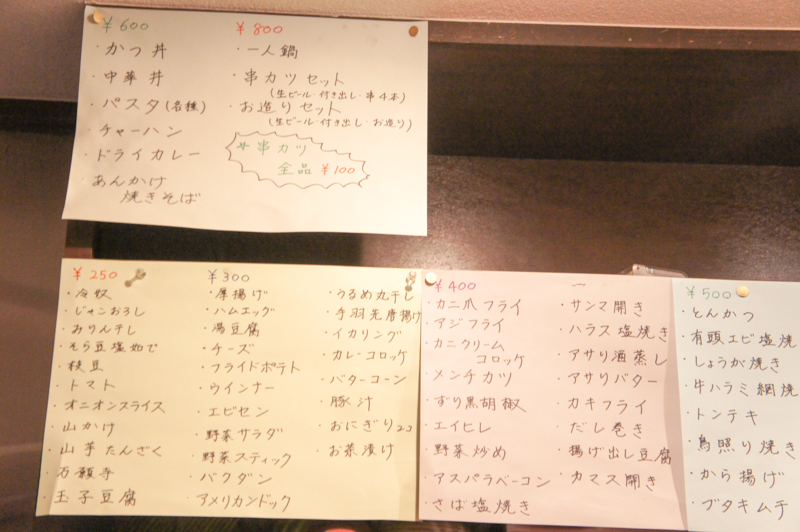 ¥600
・かつ丼
・中華丼
・パスタ(各種)
・チャーハン
・ドライカレー
・あんかけ
焼きそば
¥800
・一人鍋
・串カツセット
(生ビール・付き出し・串4本)
・お造りセット
(生ビール・付き出し・お造り)
*串カツ
全品 ¥100
¥250
・冷奴
・じゃこおろし
・みりん干し
・そら豆塩ゆで
・枝豆
・トマト
・オニオンスライス
・山かけ
・山芋たんざく
・石願寺
・玉子豆腐
¥300
・厚揚げ
・ハムエッグ
・湯豆腐
・チーズ
・フライドポテト
・ウインナー
・エビセン
・野菜サラダ
・野菜スティック
・バクダン
・アメリカンドック
・うるめ丸干し
・手羽先唐揚げ
・イカリング
・カレーコロッケ
・バターコーン
・豚汁
・おにぎり2コ
・お茶漬け
¥400
・カニ爪フライ
・アジフライ
・カニクリーム
コロッケ
・メンチカツ
・ずり黒胡椒
・エイヒレ
・野菜炒め
・アスパラベーコン
・さば塩焼き
〜
・サンマ開き
・ハラス塩焼き
・アサリ酒蒸し
・アサリバター
・カキフライ
・だし巻き
・揚げ出し豆腐
・カマス開き
¥500
・とんかつ
・有頭エビ塩焼
・しょうが焼き
・牛ハラミ網焼
・トンテキ
・鳥照り焼き
・から揚げ
・ブタキムチ